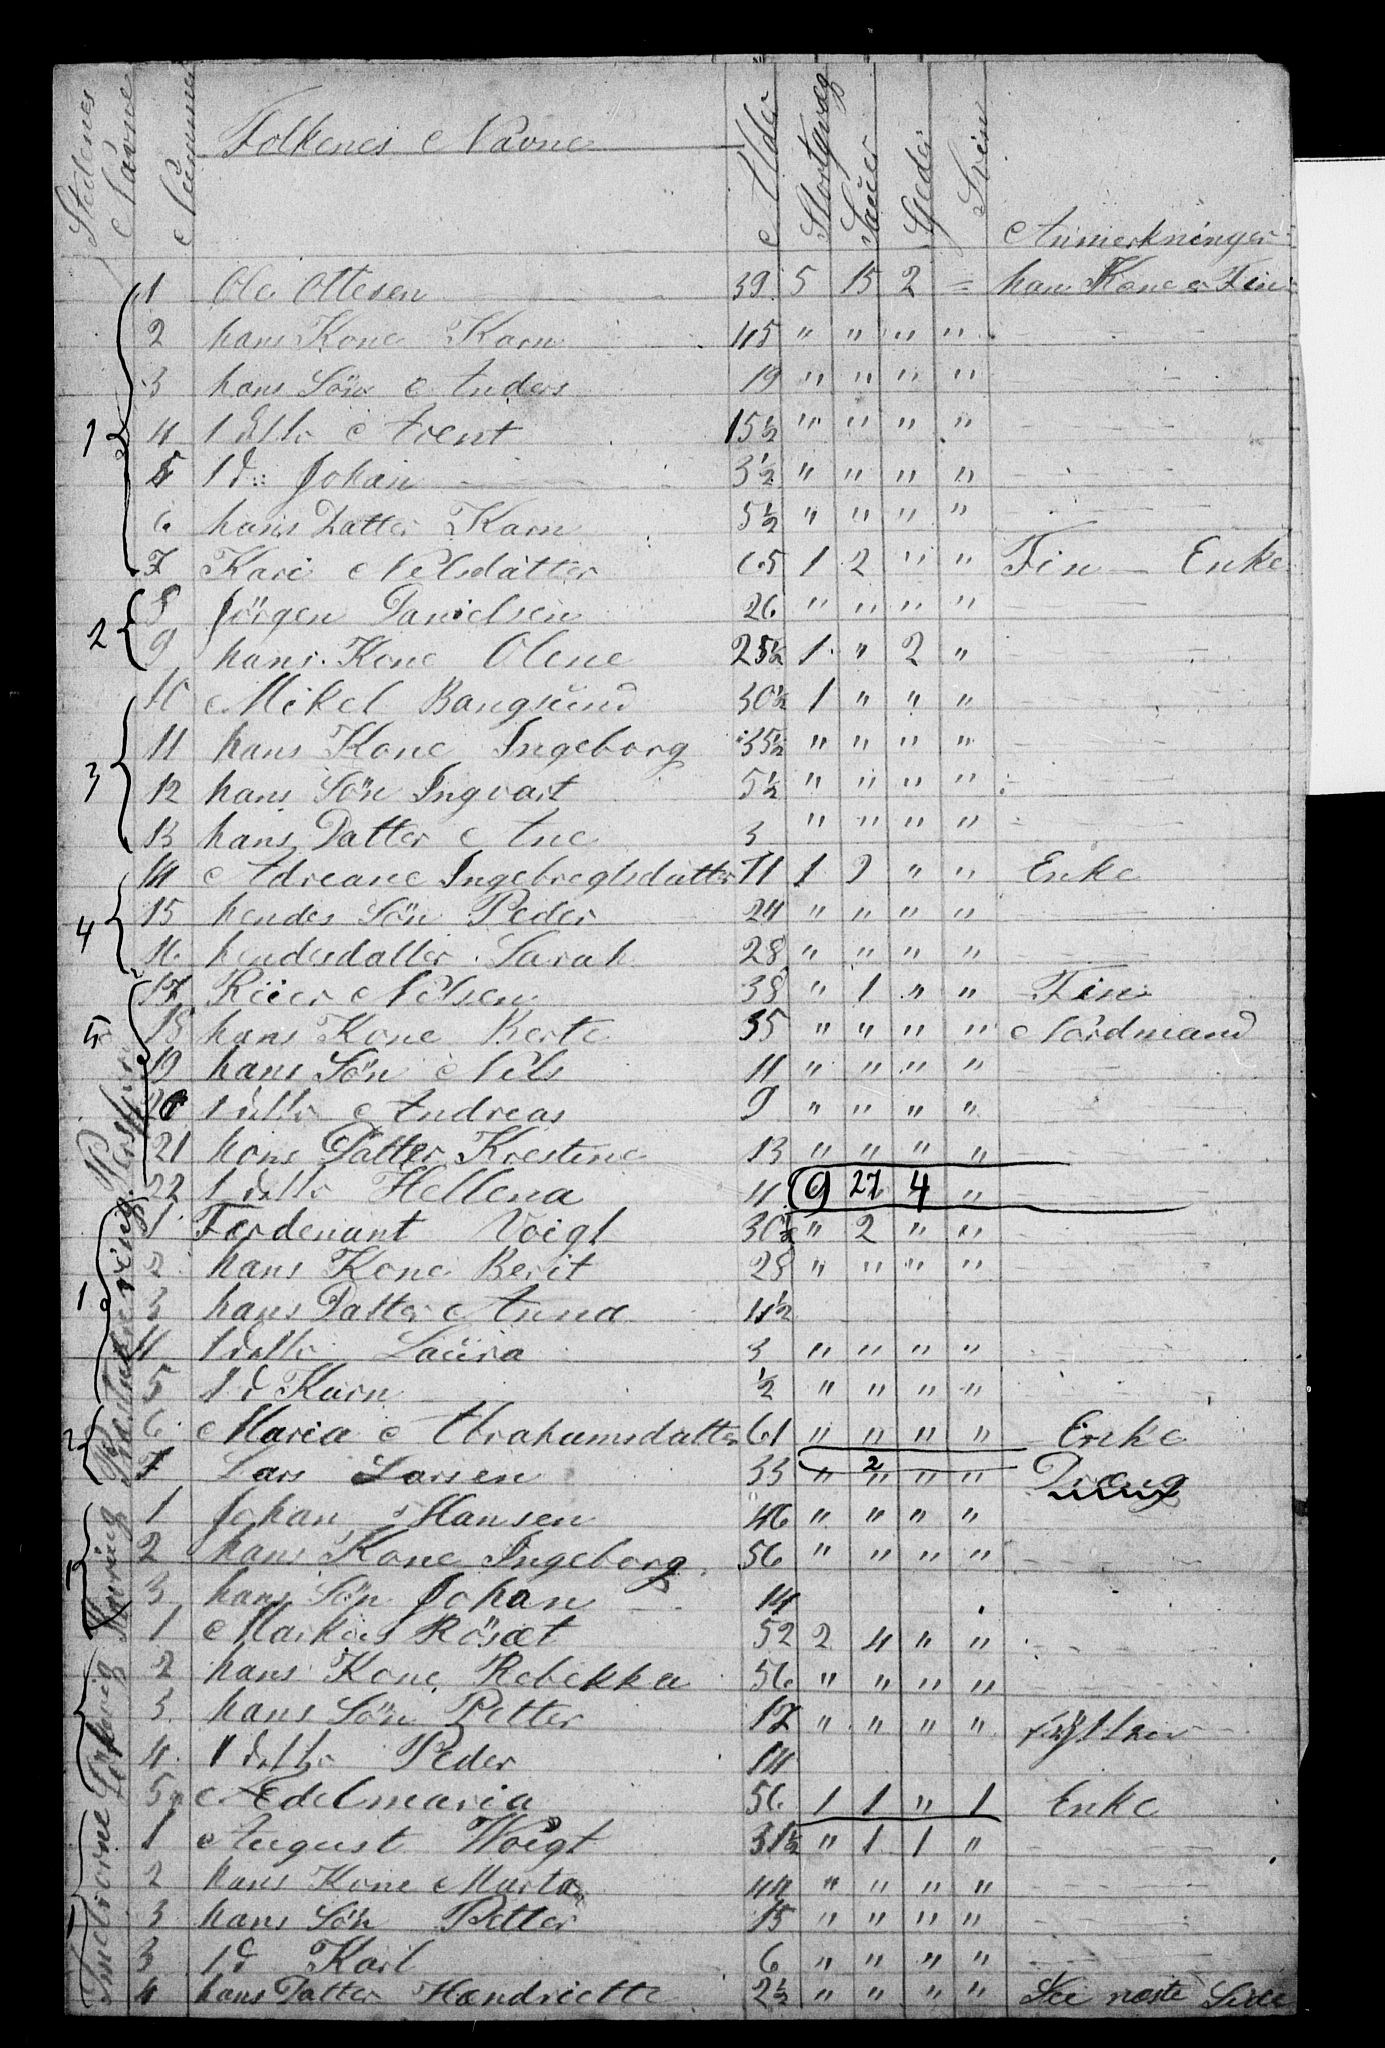 Stedenes Navne Nummer Folkenes Navne Alder Stortqvæg Sauer Gjeder Svin Anmerkninger
1 1 Ole Ottesen 39 5 15 2 = hans Kone er Fin
2 hans Kone Karn 45 " " " "
3 hans Søn Anders 19 " " " "
4 1 ditto Arent 15½ " " " "
5 1 d: Johan 3½ " " " "
6 hans Datter Karn 5½ " " " "
7 Kari Nilsdatter 65 1 2 " " Fin – Enke
2 8 Jörgen Danielsen 26 " " " "
9 hans Kone Olene 25½ 1 " 2 "
3 10 Mikel Bangsund 30½ 1 " " "
11 hans Kone Ingeborg 35½ " " " "
12 hans Søn Ingvart 5½ " " " "
13 hans Datter Ane 3 " " " "
4 14 Adreane Ingebregtsdatter 71 1 9 " " Enke
15 hendes Søn Peder 24 " " " "
16 hendesdatter Sarah 28 " " " "
5 17 Reier Nilsen 38 " 1 " " Fin
18 hans Kone Berte 35 " " " " Nordmand
19 hans Søn Nils 11 " " " "
20 1 ditto Andreas 9 " " " "
21 hans Datter Krestine 13 " " " "
22 1 ditto Hellena 11 9 27 4 "
1 1 Ferdenant Voigt 30½ " 2 " "
2 hans Kone Berit 28 " " " "
3 hans Datter Anna 4½
4 1 ditto Laura 3 " " " "
5 1 d Karn ½ " " " "
2 6 Maria Abrahamsdatter 61 " " " " Enke
2
7 Lars Larsen 33 " " " " Dræng
Haring 1 Johan Hansen 46 " " " "
2 hans Kone Ingeborg 56 " " " "
3 hans Søn Johan 14
1 Markus Rösæt 52 2 4 " "
2 hans Kone Rebekka 56 " " " "
3 hans Søn Petter 17 " " " "
4 1 ditto Peder 14
5 Edelmaria 56 1 1 " 1 Enke
1 August Woigt 31½ " 1 1 "
2 hans Kone Marta 44 " " " "
3 hans Søn Petter 15 " " " "
3 1 d Karl 6 " " " "
4 hans Datter Hændriette 2½ " " " " See næste Side